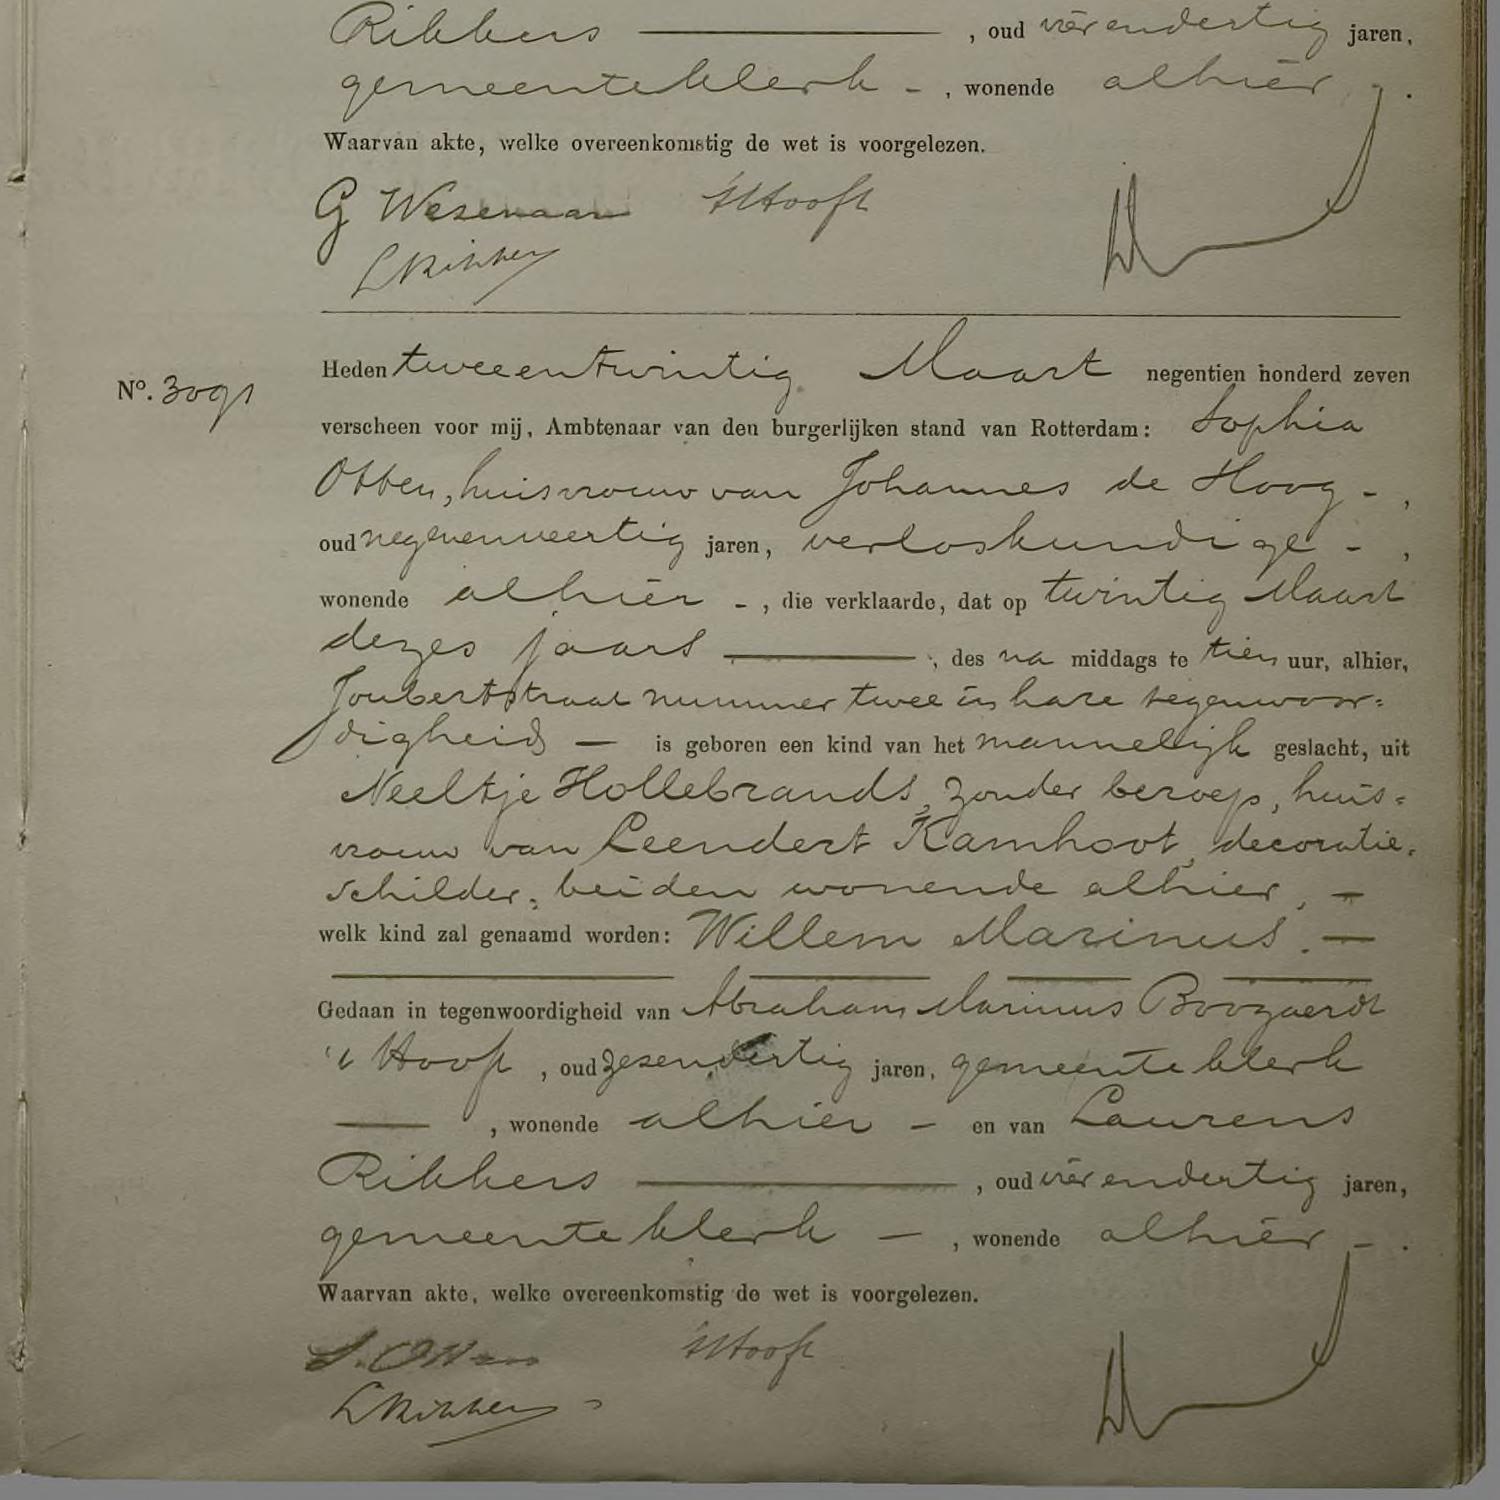 Ribbers , oud vierendertig jaren,
gemeenteklerk - , wonende alhier - .
Waarvan akte, welke overeenkomstig de wet is voorgelezen.
G Wesenaar 't Hooft
L Ribbers
Heden tweeentwintig Maart negentien honderd zeven
No. 3091
verscheen voor mij, Ambtenaar van den burgerlijken stand van Rotterdam: Sophia
Otten, huisvrouw van Johannes de Hoog - ,
oud negenenveertig jaren, verloskundige - ,
wonende alhier - , die verklaarde, dat op twintig Maart
dezes jaars , des na middags te tien uur, alhier,
Joubertstraat nummer twee in hare tegenwoor=
digheid — is geboren een kind van het mannelijk geslacht, uit
Neeltje Hollebrands, zonder beroep, huis=
vrouw van Leendert Kamhoot, decoratie=
schilder, beiden wonende alhier, —
welk kind zal genaamd worden: Willem Marinus. —
Gedaan in tegenwoordigheid van Abraham Marinus Boogaerdt
't Hooft , oud zesendertig jaren, gemeenteklerk
— , wonende alhier - en van Laurens
Ribbers , oud vierendertig jaren,
gemeenteklerk — , wonende alhier - .
Waarvan akte, welke overeenkomstig de wet is voorgelezen.
S. Otten 't Hooft
L Ribbers